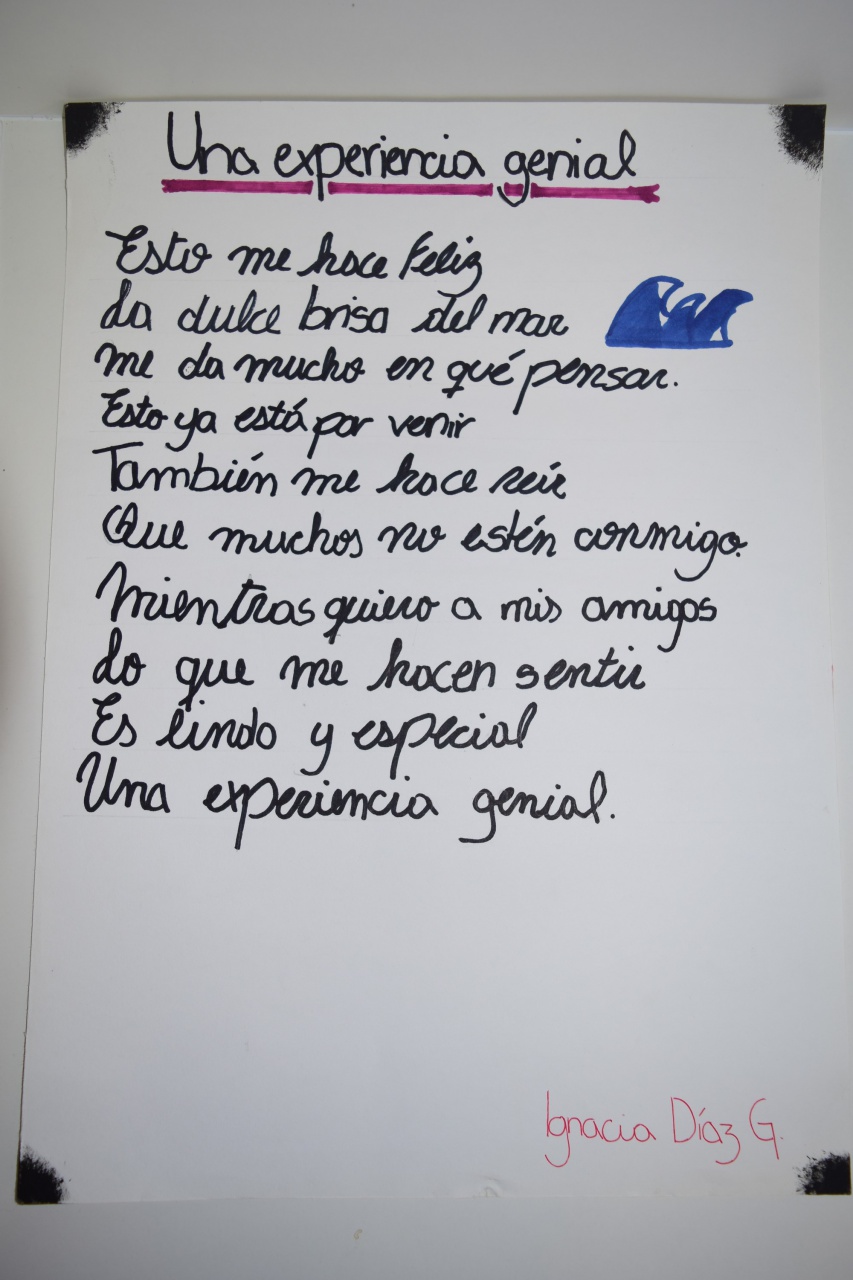 Una experiencia genial
Esto me hace feliz
La dulce brisa del mar
me da mucho en qué pensar.
Esto ya está por venir
También me hace reír
Que muchos no estén conmigo.
Mientras quiero a mis amigos
Lo que me hacen sentir
Es lindo y especial
Una experiencia genial.
Ignacia Díaz G.